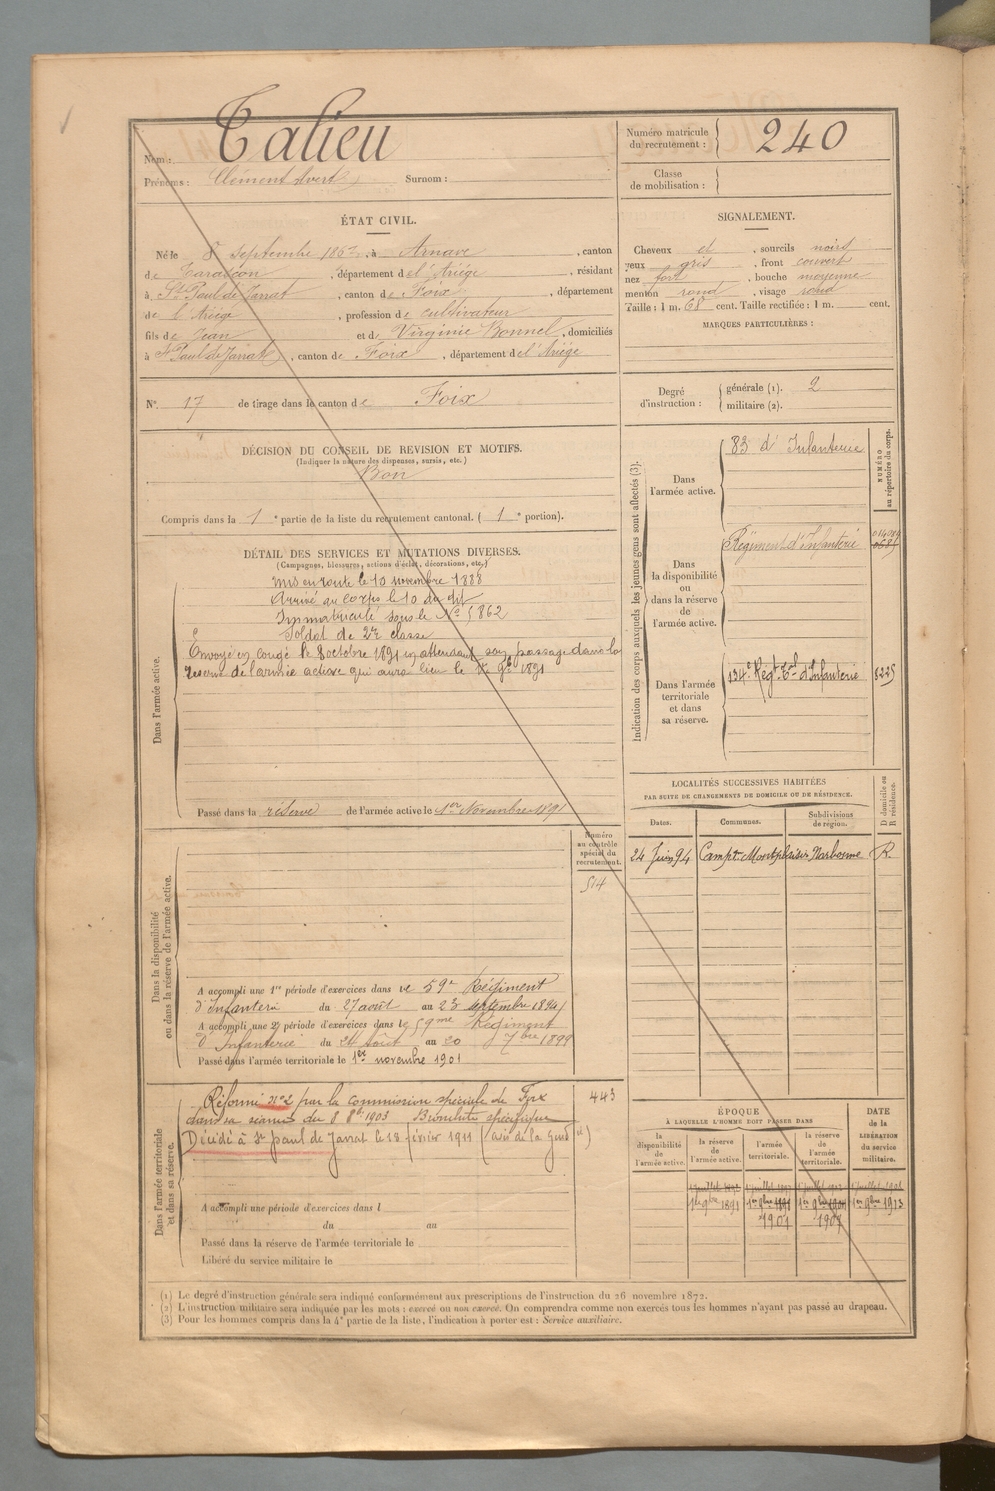 Nom : Talieu
Prénoms : Clément Surnom :
Numéro matricule du recrutement : 240
Classe de mobilisation :
ÉTAT CIVIL.
Né le 8 septembre 1867, à Arnave, canton
de Tarascon, département de l'Ariége, résidant
à St Paul de Jarrat, canton de Foix, département
de l'Ariége, profession de cultivateur
fils de Jean et de Virginie Bonnel, domiciliés
à St Paul de Jarrat, canton de Foix, département de l'Ariége
SIGNALEMENT.
Cheveux et, sourcils noirs
yeux gris, front couvert
nez fort, bouche moyenne
menton rond, visage rond
Taille : 1 m. 68 cent. Taille rectifiée : 1 m. cent.
MARQUES PARTICULIÈRES :
N° 17 de tirage dans le canton de Foix
Degré d'instruction : générale (1). 2
militaire (2).
DÉCISION DU CONSEIL DE REVISION ET MOTIFS.
(Indiquer la nature des dispenses, sursis, etc.)
Bon
Compris dans la 1e partie de la liste du recrutement cantonal. (1e portion).
DÉTAIL DES SERVICES ET MUTATIONS DIVERSES.
(Campagnes, blessures, actions d'éclat, décorations, etc.)
Dans l'armée active.
Mis en route le 10 novembre 1888
Arrivé au corps le 10 du dit
Immatriculé sous le No 5862
Soldat de 2e classe
Envoyé en congé le 8 octobre 1891 en attendant son passage dans la
réserve de l'armée active qui aura lieu le 1er 9bre 1891
Passé dans la réserve de l'armée active le 1er Novembre 1891
Indication des corps auxquels les jeunes gens sont affectés (3).
NUMÉRO au répertoire du corps.
Dans l'armée active.
83 d'Infanterie
Dans la disponibilité ou dans la réserve de l'armée active.
Régiment d'Infanterie
Dans l'armée territoriale et dans sa réserve.
134e Régt Tal d'Infanterie 8225
LOCALITÉS SUCCESSIVES HABITÉES
PAR SUITE DE CHANGEMENTS DE DOMICILE OU DE RÉSIDENCE.
Dates. Communes. Subdivisions de région. D domicile ou R résidence.
24 Juin 94 Campt Montplaisir Narbonne R.
Dans la disponibilité ou dans la réserve de l'armée active.
Numéro au contrôle spécial du recrutement.
514
A accompli une 1re période d'exercices dans le 59e Régiment
d'Infanterie du 27 août au 23 septembre 1894
A accompli une 2e période d'exercices dans le 59me Régiment
d'Infanterie du 24 Août au 20 7bre 1899
Passé dans l'armée territoriale le 1er novembre 1901
Dans l'armée territoriale et dans sa réserve.
443
Réformé n°2 par la commission spéciale de Foix
dans sa séance du 8 8bre 1903 Bronchite spécifique
Décédé à St Paul de Jarrat le 18 février 1911 (avis de la Gend ie)
A accompli une période d'exercices dans l
du au
Passé dans la réserve de l'armée territoriale le
Libéré du service militaire le
ÉPOQUE
À LAQUELLE L'HOMME DOIT PASSER DANS
la disponibilité de l'armée active. la réserve de l'armée active. l'armée territoriale. la réserve de l'armée territoriale. DATE de la LIBÉRATION du service militaire.
1er 9bre 1891 1er 9bre 1901 1er 9bre 1907 1er 9bre 1913
(1) Le degré d'instruction générale sera indiqué conformément aux prescriptions de l'instruction du 26 novembre 1872.
(2) L'instruction militaire sera indiquée par les mots : exercé ou non exercé. On comprendra comme non exercés tous les hommes n'ayant pas passé au drapeau.
(3) Pour les hommes compris dans la 4e partie de la liste, l'indication à porter est : Service auxiliaire.